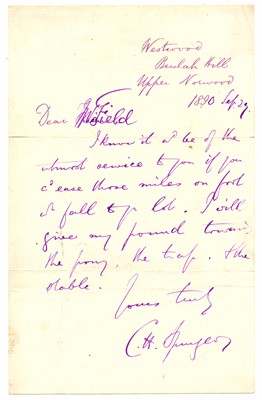 Westwood
Beulah Hill
Upper Norwood
1890 Sep. 29
Dear Mr Field
I know it wd be of the
utmost service to you if you
cd ease those miles on foot
wh fall to yr lot. I will
give my pound towards
the pony, the trap, & the
stable.
Yours truly
C. H. Spurgeon